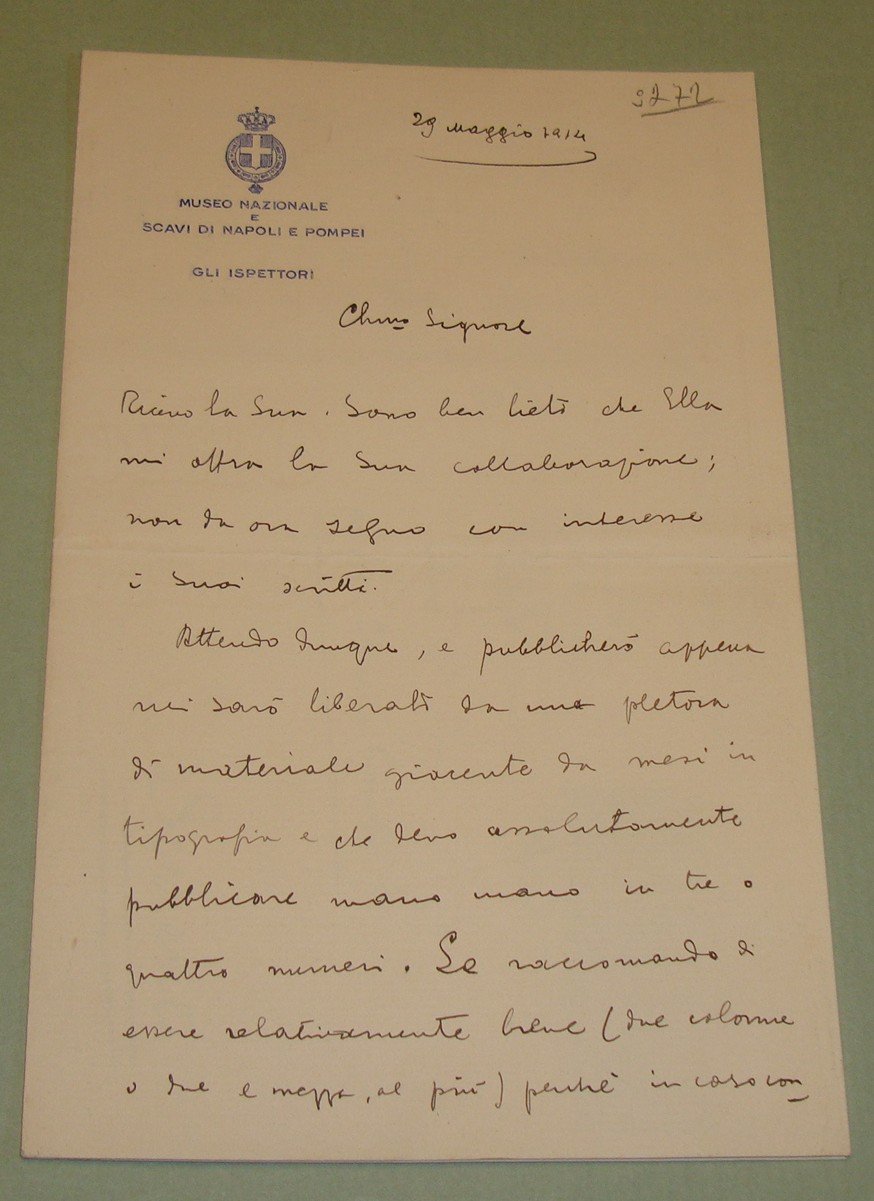 9272
29 Maggio 1914
MUSEO NAZIONALE
E
SCAVI DI NAPOLI E POMPEI
GLI ISPETTORI
Chmo Signore
Ricevo la Sua. Sono ben lieto che Ella
mi offra la Sua collaborazione;
non da ora seguo con interesse
i Suoi scritti.
Attendo dunque, e pubblicherò appena
mi sarò liberato da una pletora
di materiale giacente da mesi in
tipografia e che devo assolutamente
pubblicare mano mano in tre o
quattro numeri. Le raccomando di
essere relativamente breve (due colonne
o due e mezza, al più) perchè in caso con